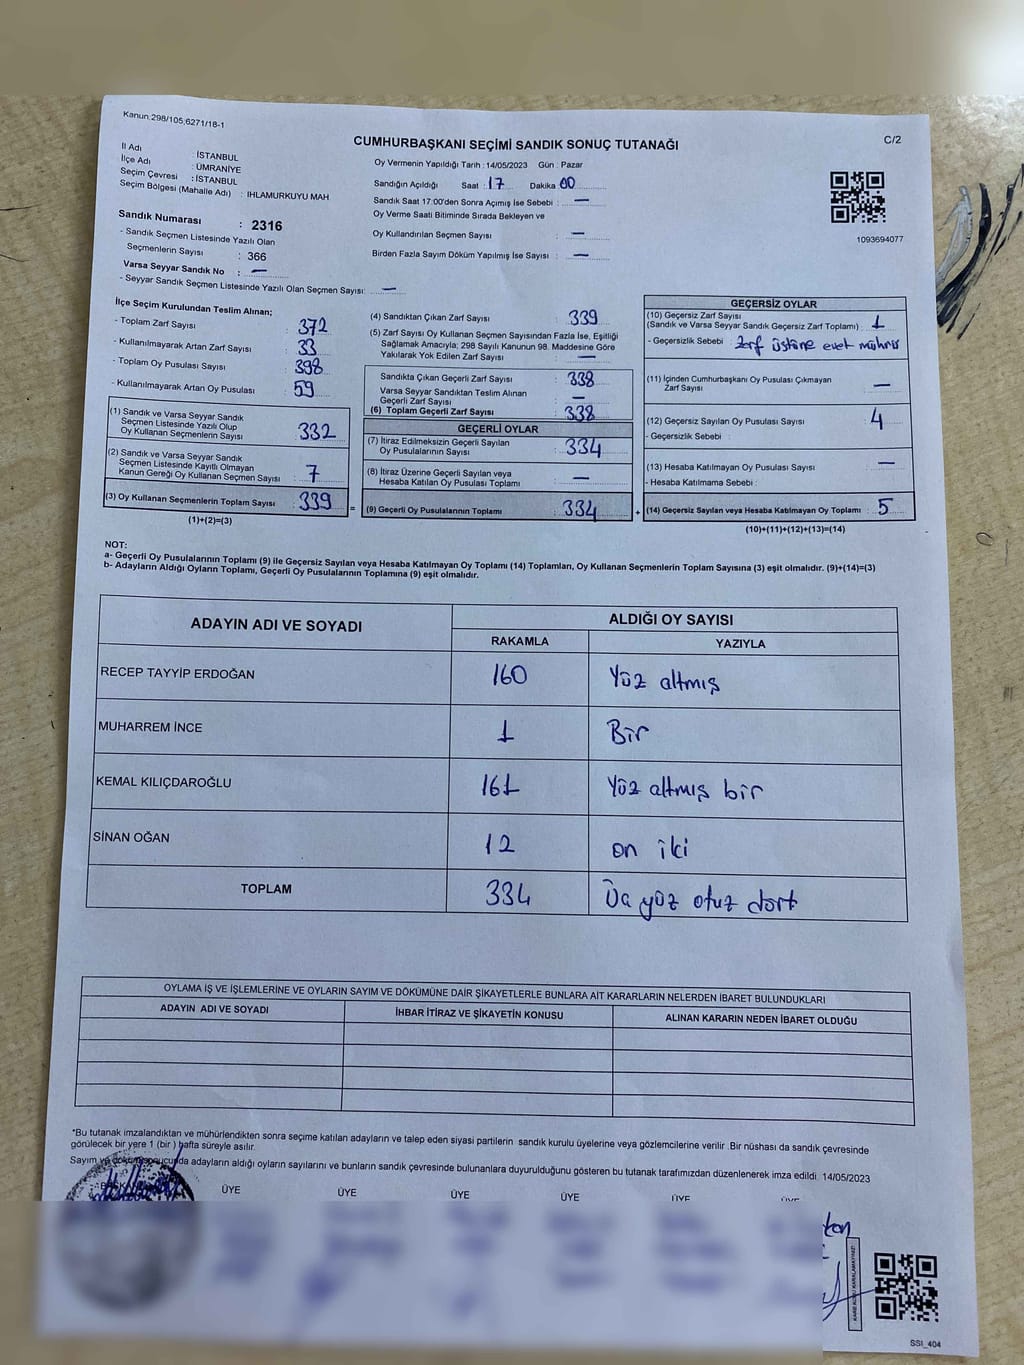 Kanun:298/105,6271/18-1
CUMHURBAŞKANI SEÇİMİ SANDIK SONUÇ TUTANAĞI
C/2
İl Adı : İSTANBUL
İlçe Adı : ÜMRANİYE
Seçim Çevresi : İSTANBUL
Seçim Bölgesi (Mahalle Adı) : IHLAMURKUYU MAH
Sandık Numarası : 2316
- Sandık Seçmen Listesinde Yazılı Olan
Seçmenlerin Sayısı : 366
Varsa Seyyar Sandık No : —
- Seyyar Sandık Seçmen Listesinde Yazılı Olan Seçmen Sayısı: —
Oy Vermenin Yapıldığı Tarih : 14/05/2023 Gün : Pazar
Sandığın Açıldığı Saat : 17 Dakika 00
Sandık Saat 17:00'den Sonra Açımış İse Sebebi : —
Oy Verme Saati Bitiminde Sırada Bekleyen ve
Oy Kullandırılan Seçmen Sayısı : —
Birden Fazla Sayım Döküm Yapılmış İse Sayısı : —
1093694077
İlçe Seçim Kurulundan Teslim Alınan;
- Toplam Zarf Sayısı : 372
- Kullanılmayarak Artan Zarf Sayısı : 33
- Toplam Oy Pusulası Sayısı : 398
- Kullanılmayarak Artan Oy Pusulası : 59
(1) Sandık ve Varsa Seyyar Sandık
Seçmen Listesinde Yazılı Olup
Oy Kullanan Seçmenlerin Sayısı : 332
(2) Sandık ve Varsa Seyyar Sandık
Seçmen Listesinde Kayıtlı Olmayan
Kanun Gereği Oy Kullanan Seçmen Sayısı : 7
(3) Oy Kullanan Seçmenlerin Toplam Sayısı : 339
(1)+(2)=(3)
=
(4) Sandıktan Çıkan Zarf Sayısı : 339
(5) Zarf Sayısı Oy Kullanan Seçmen Sayısından Fazla İse, Eşitliği
Sağlamak Amacıyla; 298 Sayılı Kanunun 98. Maddesine Göre
Yakılarak Yok Edilen Zarf Sayısı : —
Sandıkta Çıkan Geçerli Zarf Sayısı : 338
Varsa Seyyar Sandıktan Teslim Alınan
Geçerli Zarf Sayısı : —
(6) Toplam Geçerli Zarf Sayısı : 338
GEÇERLİ OYLAR
(7) İtiraz Edilmeksizin Geçerli Sayılan
Oy Pusulalarının Sayısı : 334
(8) İtiraz Üzerine Geçerli Sayılan veya
Hesaba Katılan Oy Pusulası Toplamı : —
(9) Geçerli Oy Pusulalarının Toplamı : 334
+
GEÇERSİZ OYLAR
(10) Geçersiz Zarf Sayısı
(Sandık ve Varsa Seyyar Sandık Geçersiz Zarf Toplamı) : 1
- Geçersizlik Sebebi : Zarf üstüne evet mührü
(11) İçinden Cumhurbaşkanı Oy Pusulası Çıkmayan
Zarf Sayısı : —
(12) Geçersiz Sayılan Oy Pusulası Sayısı : 4
- Geçersizlik Sebebi :
(13) Hesaba Katılmayan Oy Pusulası Sayısı : —
- Hesaba Katılmama Sebebi :
(14) Geçersiz Sayılan veya Hesaba Katılmayan Oy Toplamı : 5
(10)+(11)+(12)+(13)=(14)
NOT:
a- Geçerli Oy Pusulalarının Toplamı (9) ile Geçersiz Sayılan veya Hesaba Katılmayan Oy Toplamı (14) Toplamları, Oy Kullanan Seçmenlerin Toplam Sayısına (3) eşit olmalıdır. (9)+(14)=(3)
b- Adayların Aldığı Oyların Toplamı, Geçerli Oy Pusulalarının Toplamına (9) eşit olmalıdır.
ADAYIN ADI VE SOYADI
ALDIĞI OY SAYISI
RAKAMLA YAZIYLA
RECEP TAYYİP ERDOĞAN 160 Yüz altmış
MUHARREM İNCE 1 Bir
KEMAL KILIÇDAROĞLU 161 Yüz altmış bir
SİNAN OĞAN 12 on iki
TOPLAM 334 Üç yüz otuz dört
OYLAMA İŞ VE İŞLEMLERİNE VE OYLARIN SAYIM VE DÖKÜMÜNE DAİR ŞİKAYETLERLE BUNLARA AİT KARARLARIN NELERDEN İBARET BULUNDUKLARI
ADAYIN ADI VE SOYADI İHBAR İTİRAZ VE ŞİKAYETİN KONUSU ALINAN KARARIN NEDEN İBARET OLDUĞU
*Bu tutanak imzalandıktan ve mühürlendikten sonra seçime katılan adayların ve talep eden siyasi partilerin sandık kurulu üyelerine veya gözlemcilerine verilir .Bir nüshası da sandık çevresinde
görülecek bir yere 1 (bir ) hafta süreyle asılır.
Sayım ve döküm sonucunda adayların aldığı oyların sayılarını ve bunların sandık çevresinde bulunanlara duyurulduğunu gösteren bu tutanak tarafımızdan düzenlenerek imza edildi. 14/05/2023
BAŞKAN ÜYE ÜYE ÜYE ÜYE ÜYE ÜYE
SSI_404